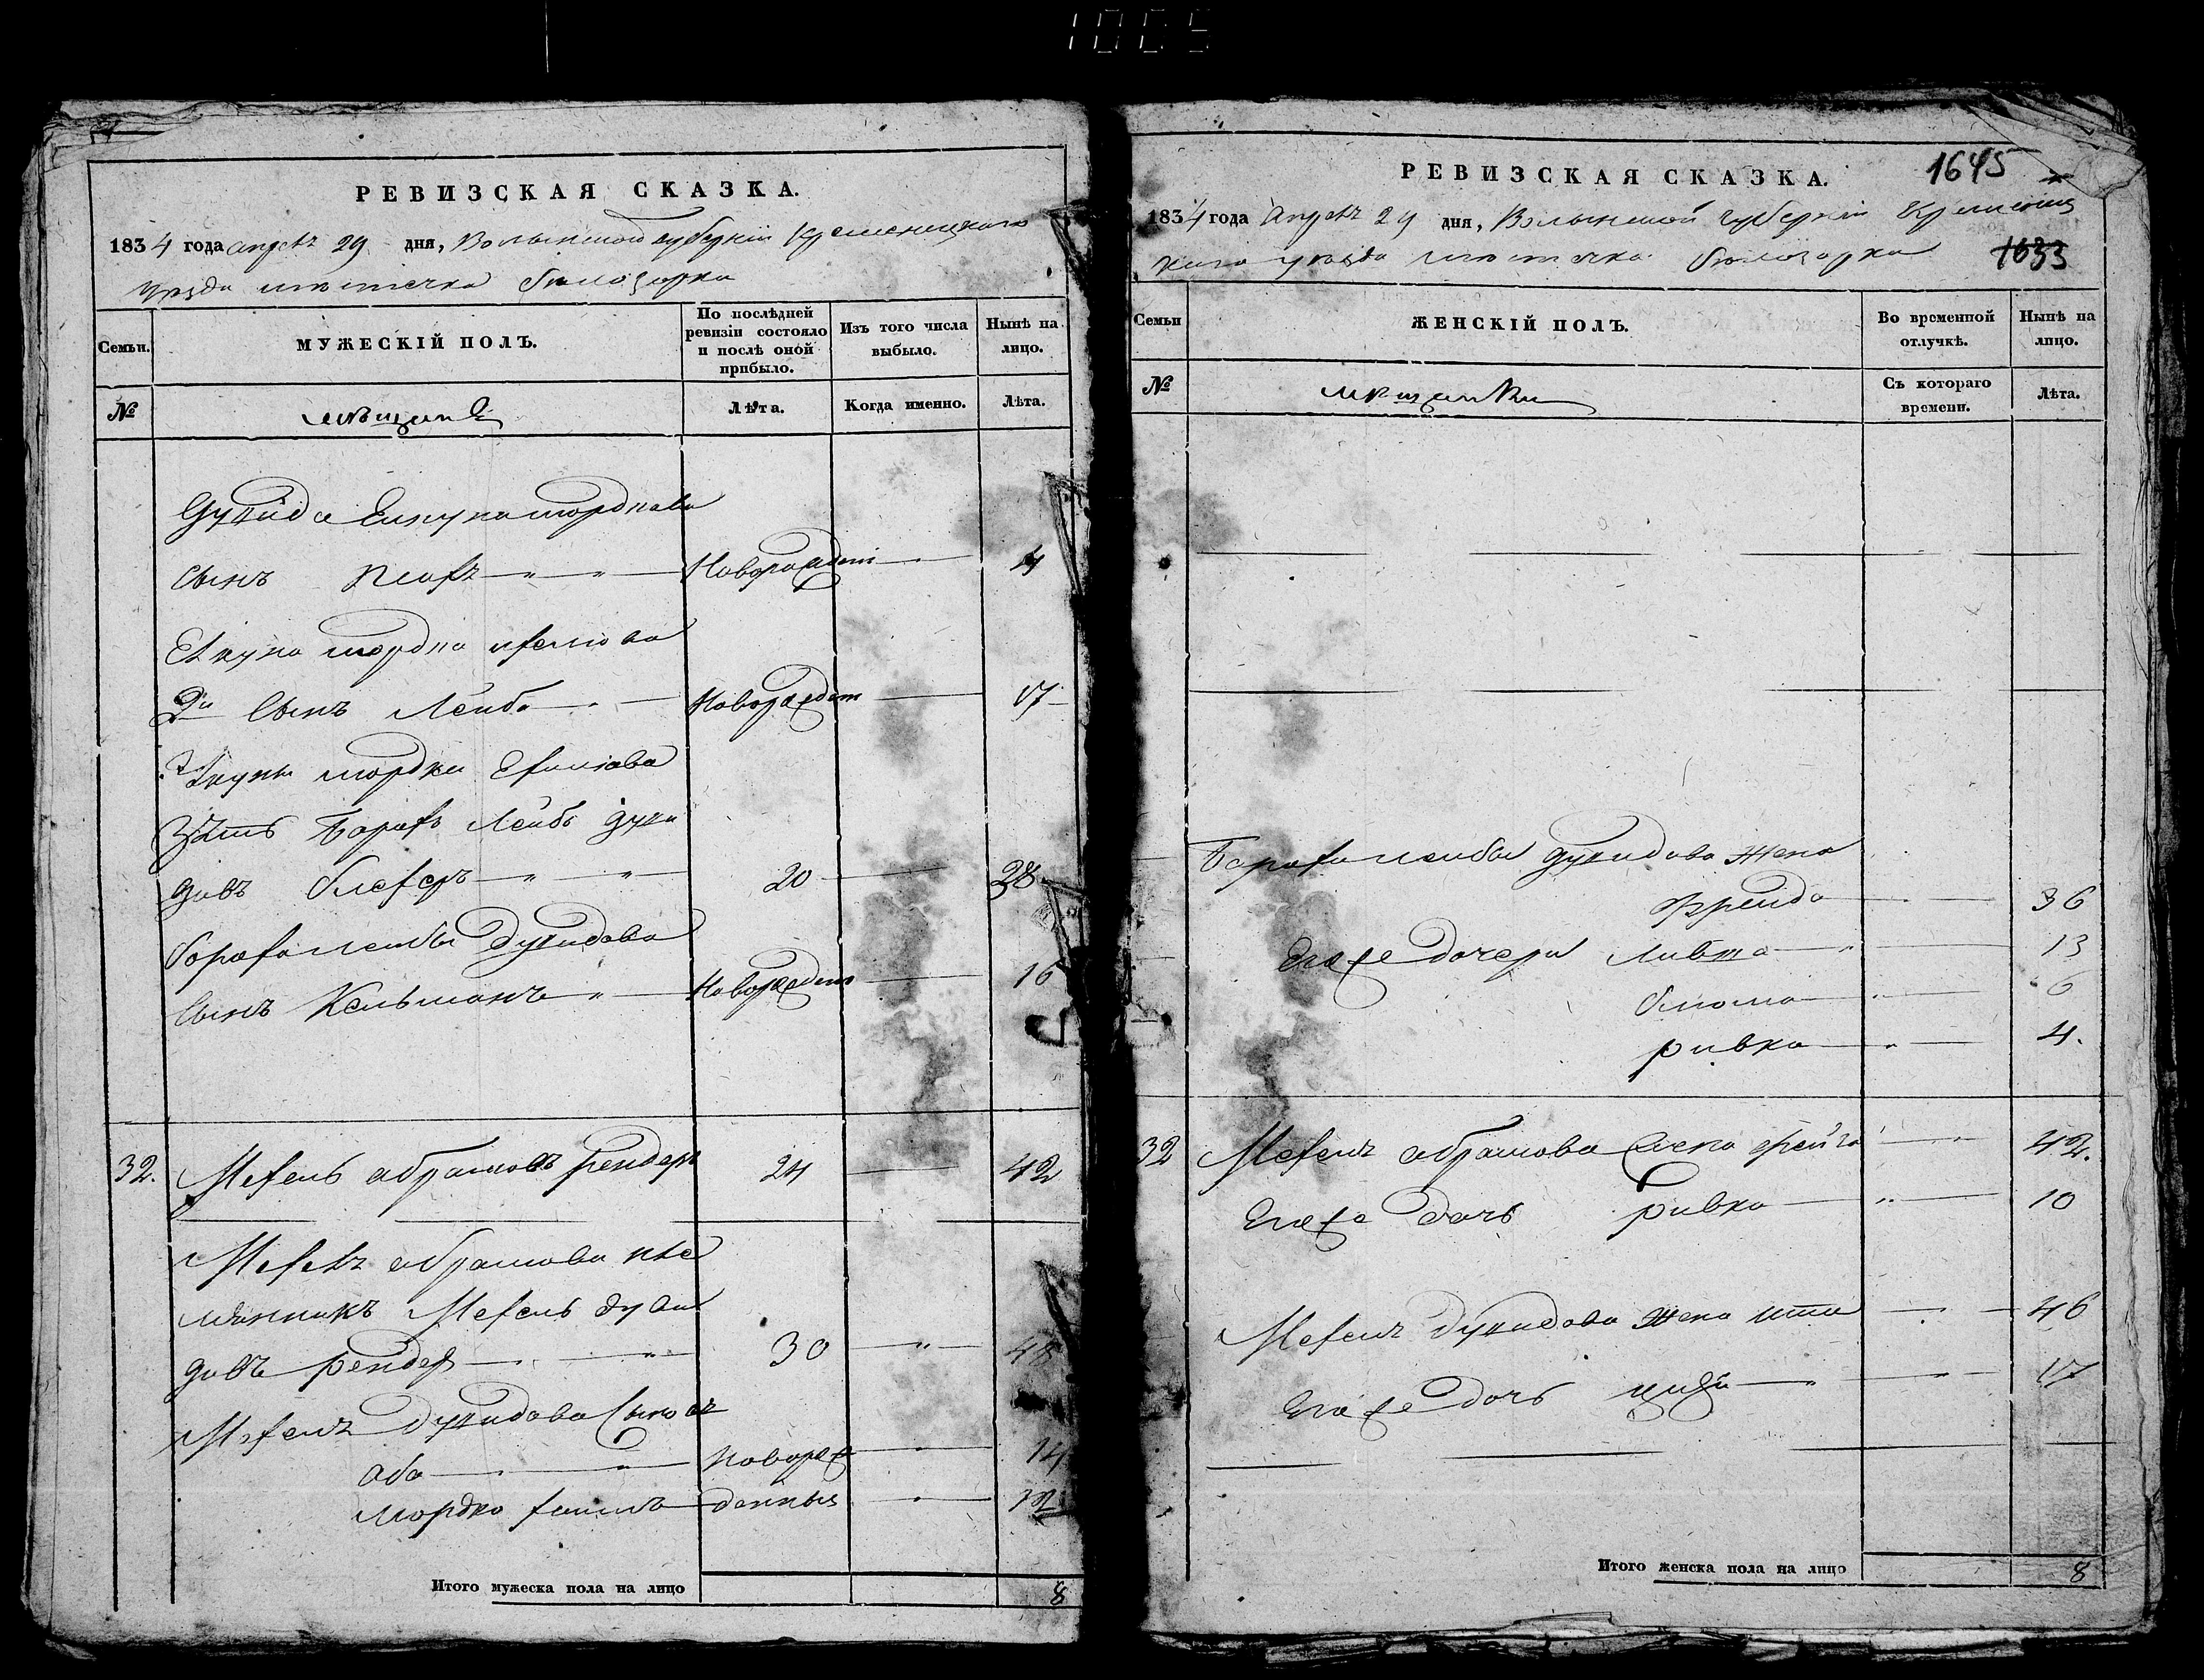 1005
РЕВИЗСКАЯ СКАЗКА.
1834 года апреля 29 дня, Волынской губернии Кременецкого
уезда местечка белозорки
Семьи.
МУЖЕСКІЙ ПОЛЪ.
По послѣдней ревизіи состояло и послѣ оной прибыло.
Изъ того числа выбыло.
Нынѣ на лицо.
№
мещане
Лѣта.
Когда именно.
Лѣта.
мордкова
сынъ Новорожден 4
мордка
2й сынъ Лейба Новорожден 17
мордки
зять Борох Лейбъ Дуви
довъ 20 28
Бороха лейбы Дувидова
сынъ Кельманъ Новорожден 16
32. Мехель абрамовъ бендеръ 24 42
Мехеля абрамова пле
мянникъ Мехель Дуви
довъ бендер 30 48
Мехеля Дувидова сыновья
аба новорож 14
мордко денныя 12
Итого мужеска пола на лицо 8
РЕВИЗСКАЯ СКАЗКА.
1645
1834 года апреля 29 дня, Волынской губернии Кременец
каго уезда местечка белозорки
1633
Семьи
ЖЕНСКІЙ ПОЛЪ.
Во временной отлучкѣ.
Нынѣ на лицо.
№
мещанки
Съ котораго времени.
Лѣта.
Бороха лейбы дувидова жена
Фрейда 36
Его же дочери 13
блюма 6
ривка 4.
32 Мехеля абрамова жена фейга 42.
Его же дочь ривка 10
Мехеля Дувидова жена 46
Его же дочь 17
Итого женска пола на лицо 8